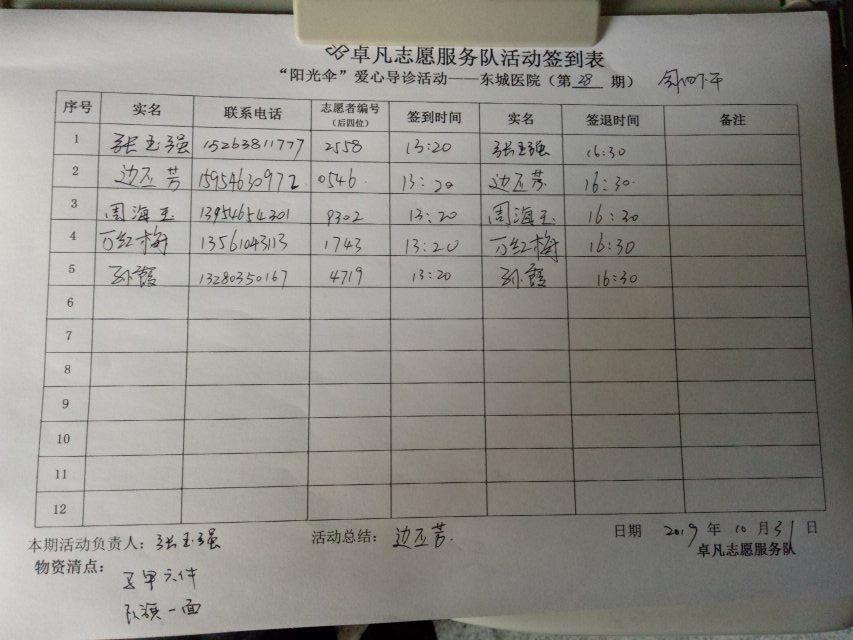 卓凡志愿服务队活动签到表
“阳光伞”爱心导诊活动——东城医院（第 28 期） 周四下午
序号 实名 联系电话 志愿者编号（后四位） 签到时间 实名 签退时间 备注
1 张玉强 15263811777 2558 13:20 张玉强 16:30
2 边丕芳 15954630972 0546 13:20 边丕芳 16:30
3 周海玉 13954654301 9302 13:20 周海玉 16:30
4 万红梅 13561043113 1743 13:20 万红梅 16:30
5 孙霞 13280350167 4719 13:20 孙霞 16:30
6
7
8
9
10
11
12
本期活动负责人：张玉强 活动总结：边丕芳 日期 2019 年 10 月 31 日
卓凡志愿服务队
物资清点：马甲六件
队旗一面